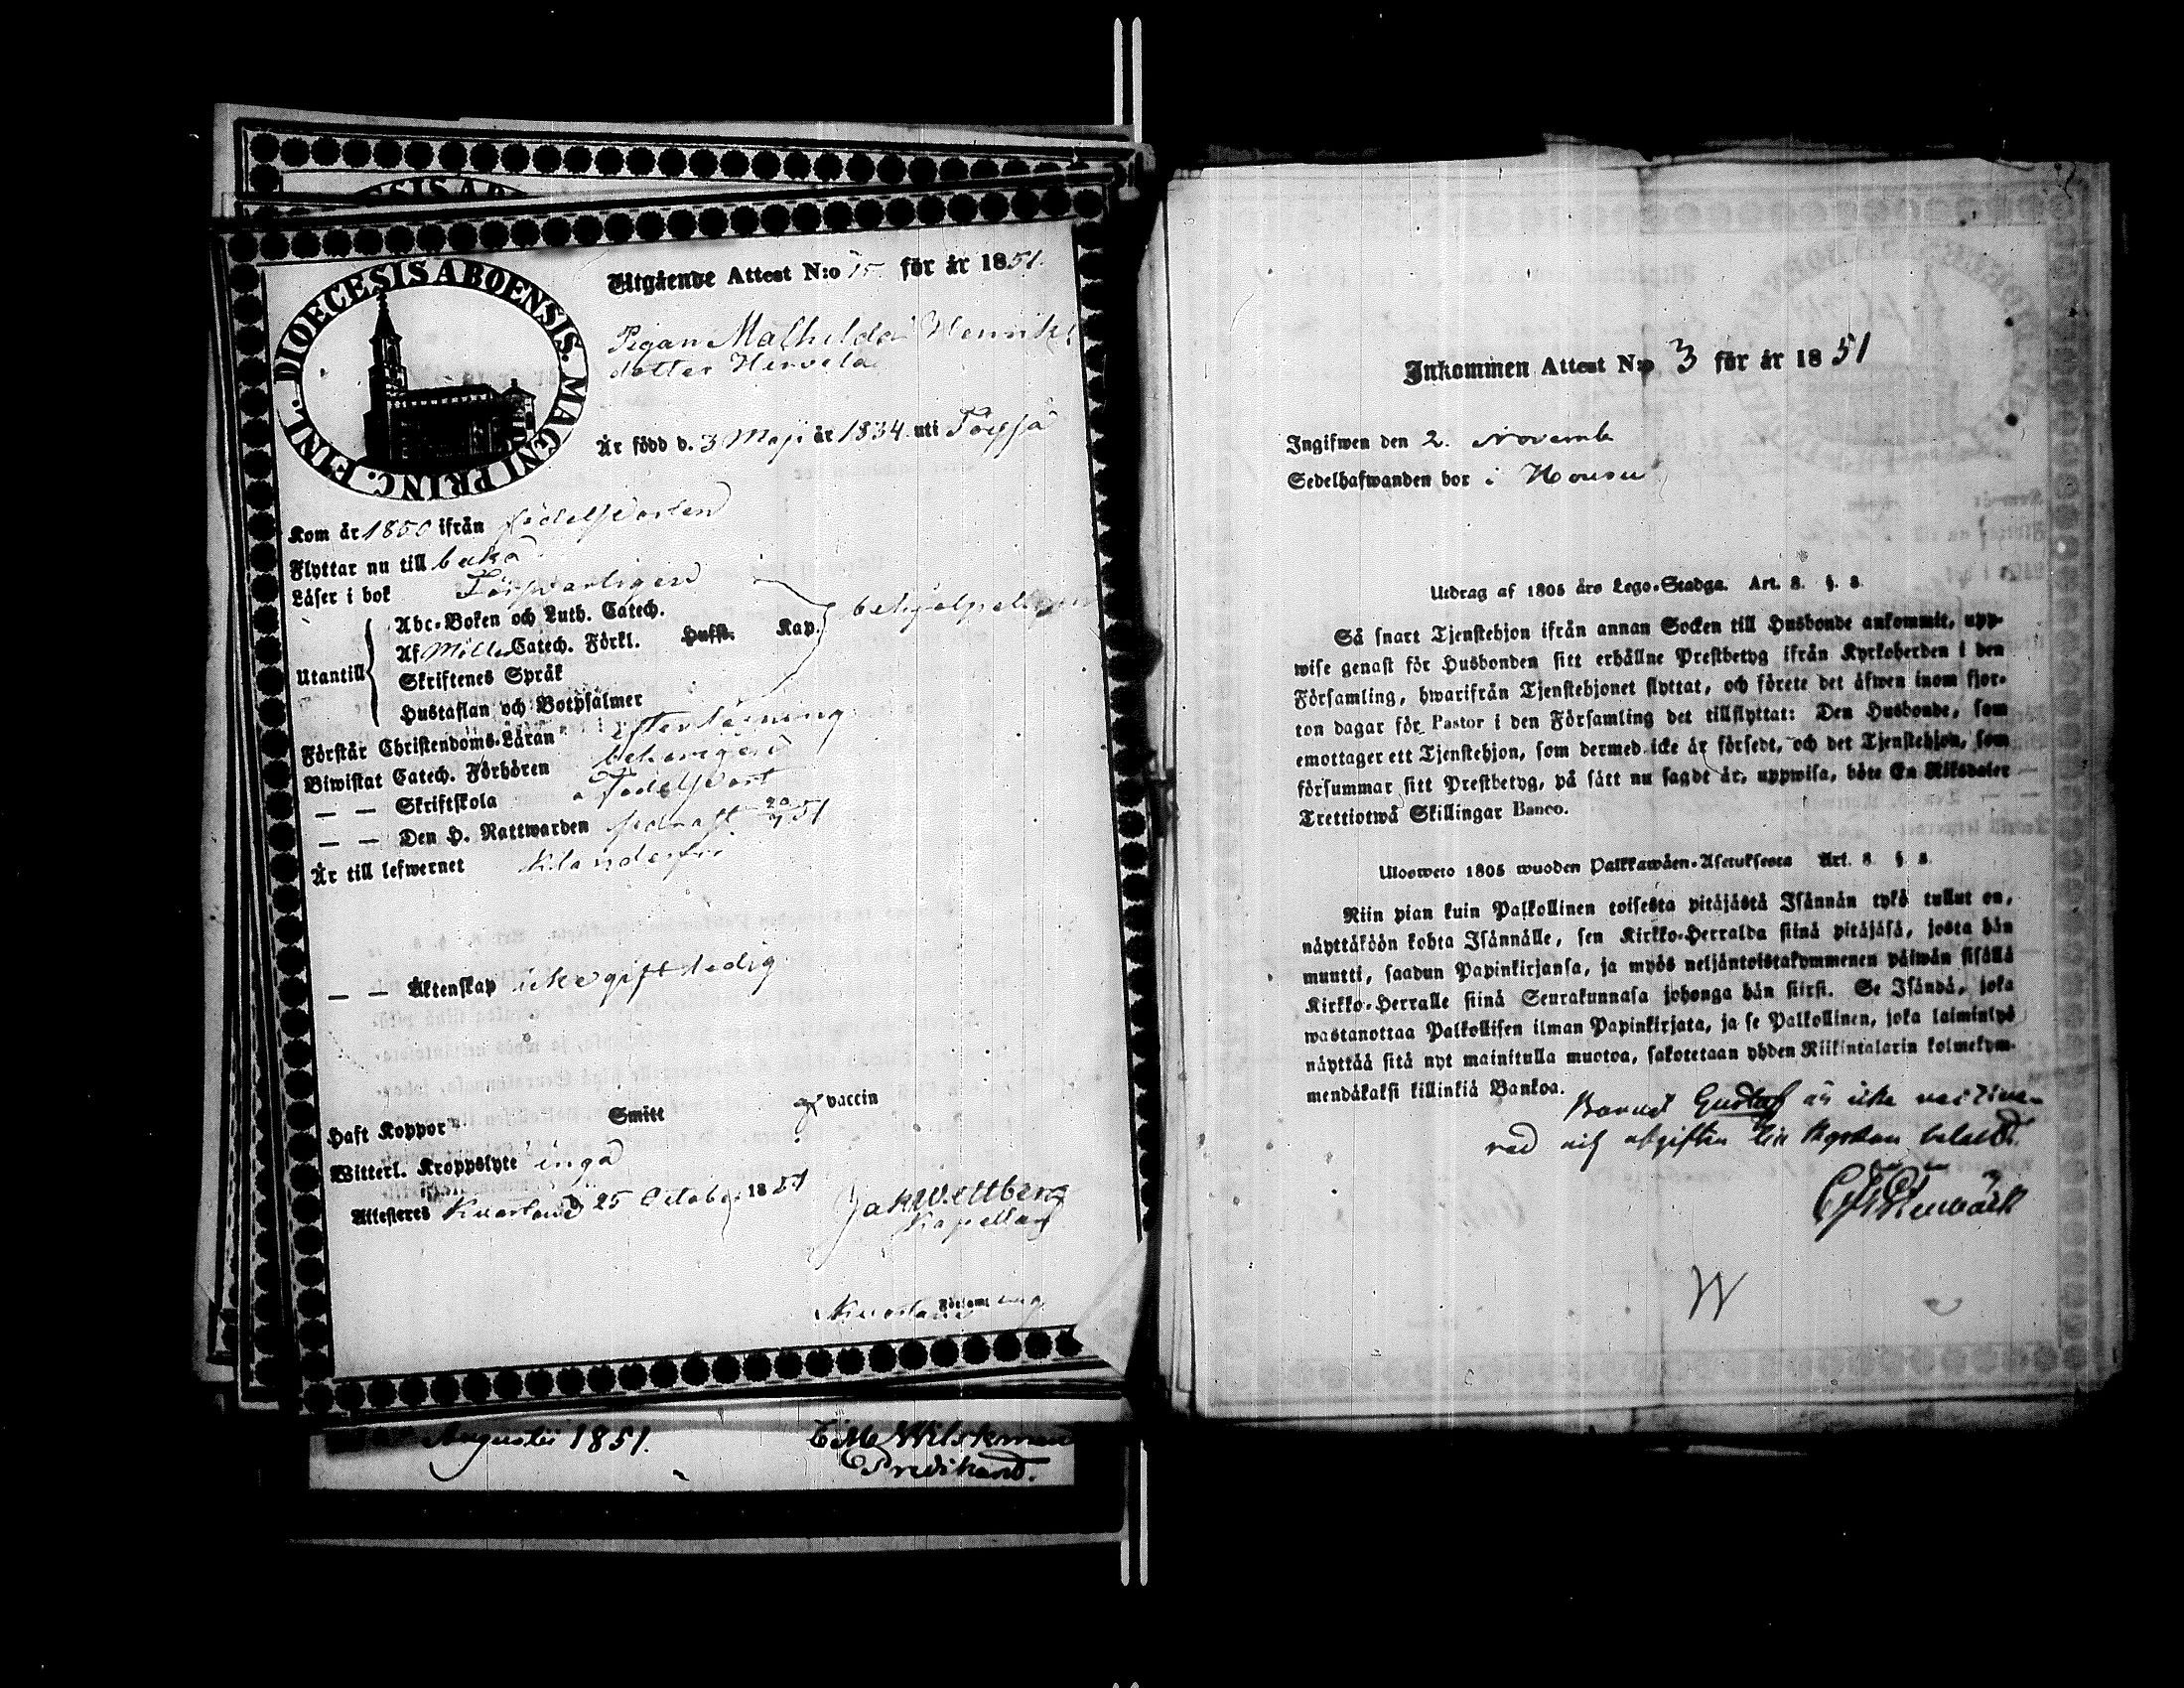 DIOECESIS ABOENSIS. MAGNI PRINC. FINL.
Utgående Attest N:o 75 för år 1851.
Pigan Mathilda Henriks
dotter Hervela
Är född d. 3 Maji år 1834 uti
Kom år 1850 ifrån
Flyttar nu till
Läser i bok Försvarligen
Utantill
Abc-Boken och Luth. Catech.
Af Catech. Förkl. Hufst. Kap.
Skriftenes Språk
Hustaflan och Botpsalmer
Förstår Christendoms-Läran efter läsning
Biwistat Catech. Förhören behörigen
— — Skriftskola
— — Den H. Nattwarden sednast 51
Är till lefwernet klanderfri
— — Äktenskap icke gift ledig
Haft Koppor Smitt vaccin
Witterl. Kroppslyte inga
Attesteres 25 October 1851
Jak Wettberg
Kapellan
Församl
Augusti 1851.
Wilskman
Predikand.
Inkommen Attest N:o 3 för år 1851
Ingifwen den 2. Novemb
Sedelhafwanden bor i
Utdrag af 1805 års Lego-Stadga. Art. 8. §. 8.
Så snart Tjenstehjon ifrån annan Socken till Husbonde ankommit, upp-
wise genast för Husbonden sitt erhållne Prestbetyg ifrån Kyrkoherden i den
Församling, hwarifrån Tjenstehjonet flyttat, och förete det äfwen inom fjor-
ton dagar för Pastor i den Församling det tillflyttat: Den Husbonde, som
emottager ett Tjenstehjon, som dermed icke är försedt, och det Tjenstehjon, som
försummar sitt Prestbetyg, på sätt nu sagdt är, uppwisa, böte En Riksdaler
Trettiotwå Skillingar Banco.
Ulosweto 1805 wuoden Palkkawäen-Asetuksesta Art. 8 §. 8.
Niin pian kuin Palkollinen toisesta pitäjästä Isännän tykö tullut on,
näyttäköön kohta Isännälle, sen Kirkko-Herralda siinä pitäjäsä, josta hän
muutti, saadun Papinkirjansa, ja myös neljäntoistakymmenen päiwän sisällä
Kirkko-Herralle siinä Seurakunnasa johonga hän siirsi. Se Isändä, joka
wastanottaa Palkollisen ilman Papinkirjata, ja se Palkollinen, joka laiminlyö
näyttää sitä nyt mainitulla muotoa, sakotetaan yhden Riikintalarin kolmekym-
mendäkaksi killinkiä Bankoa.
Barnet Gustaf är icke vaccine-
rad och afgiften till kyrkan betald.
W